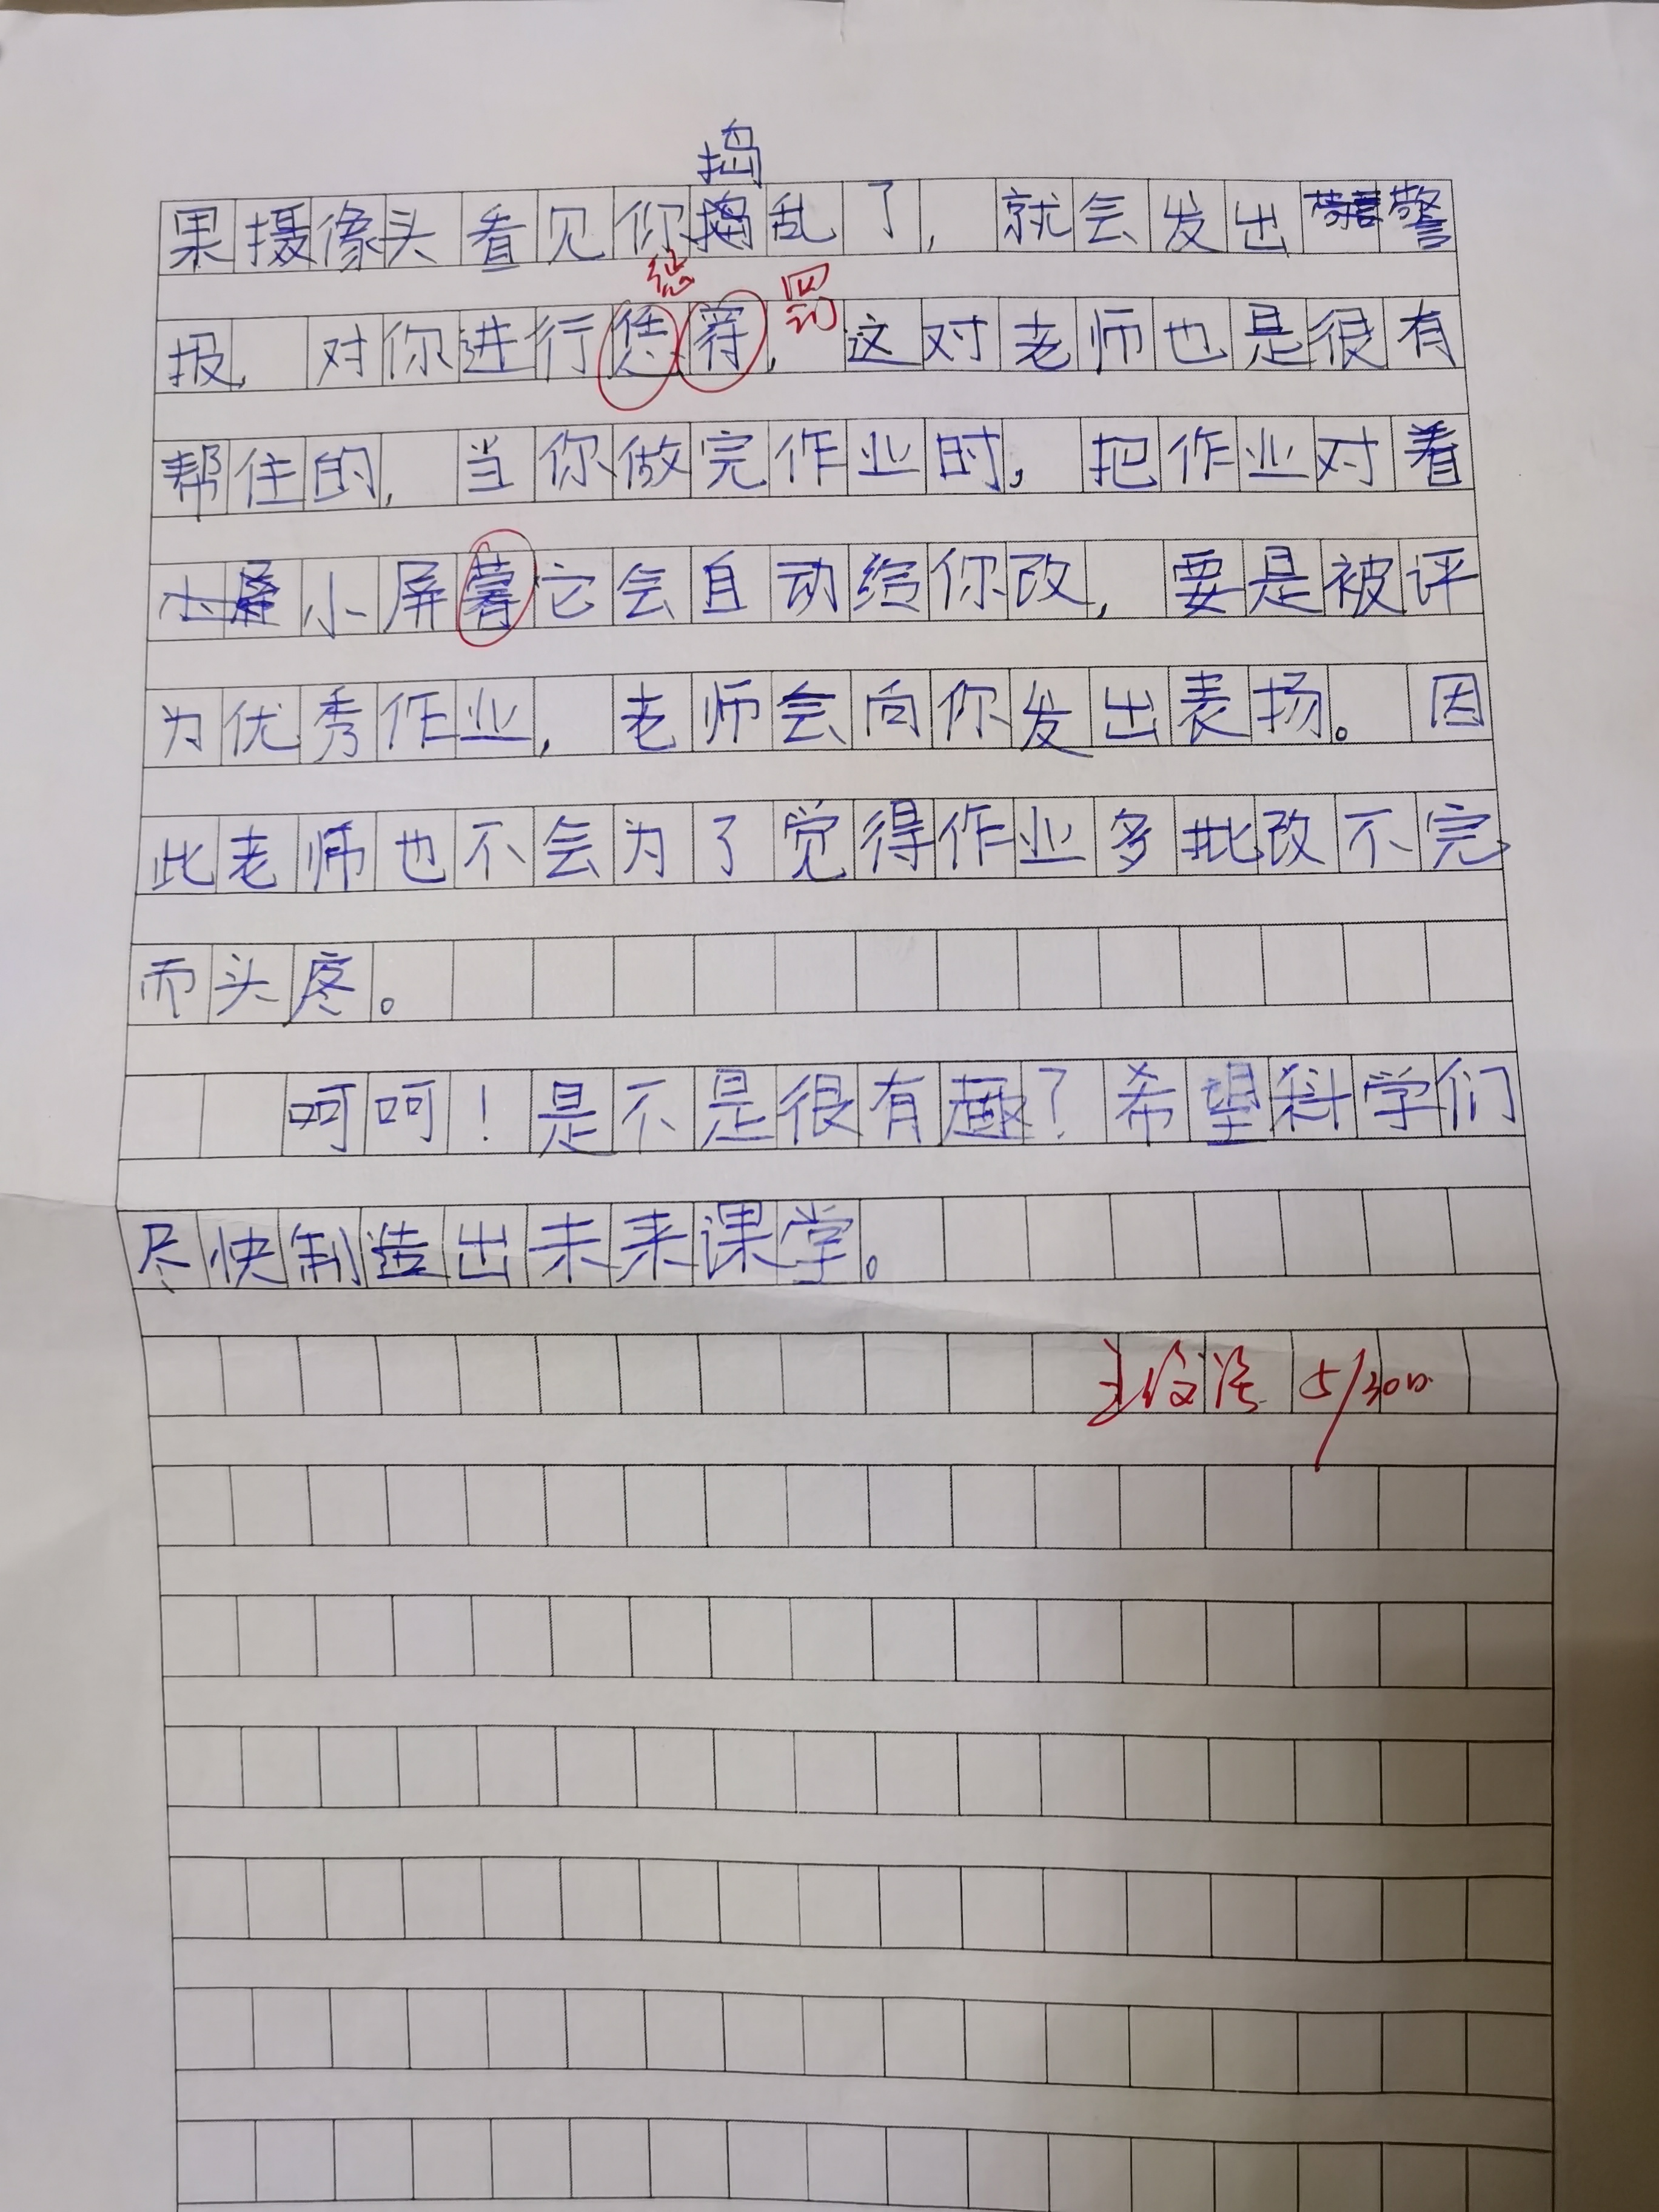 捣
果摄像头看见你捣乱了，就会发出警
惩 罚
报，对你进行惩，这对老师也是很有
帮住的，当你做完作业时，把作业对着
小屏它会自动给你改，要是被评
为优秀作业，老师会向你发出表扬。因
此老师也不会为了觉得作业多批改不完
而头疼。
呵呵！是不是很有趣？希望科学们
尽快制造出未来课堂。
5/30